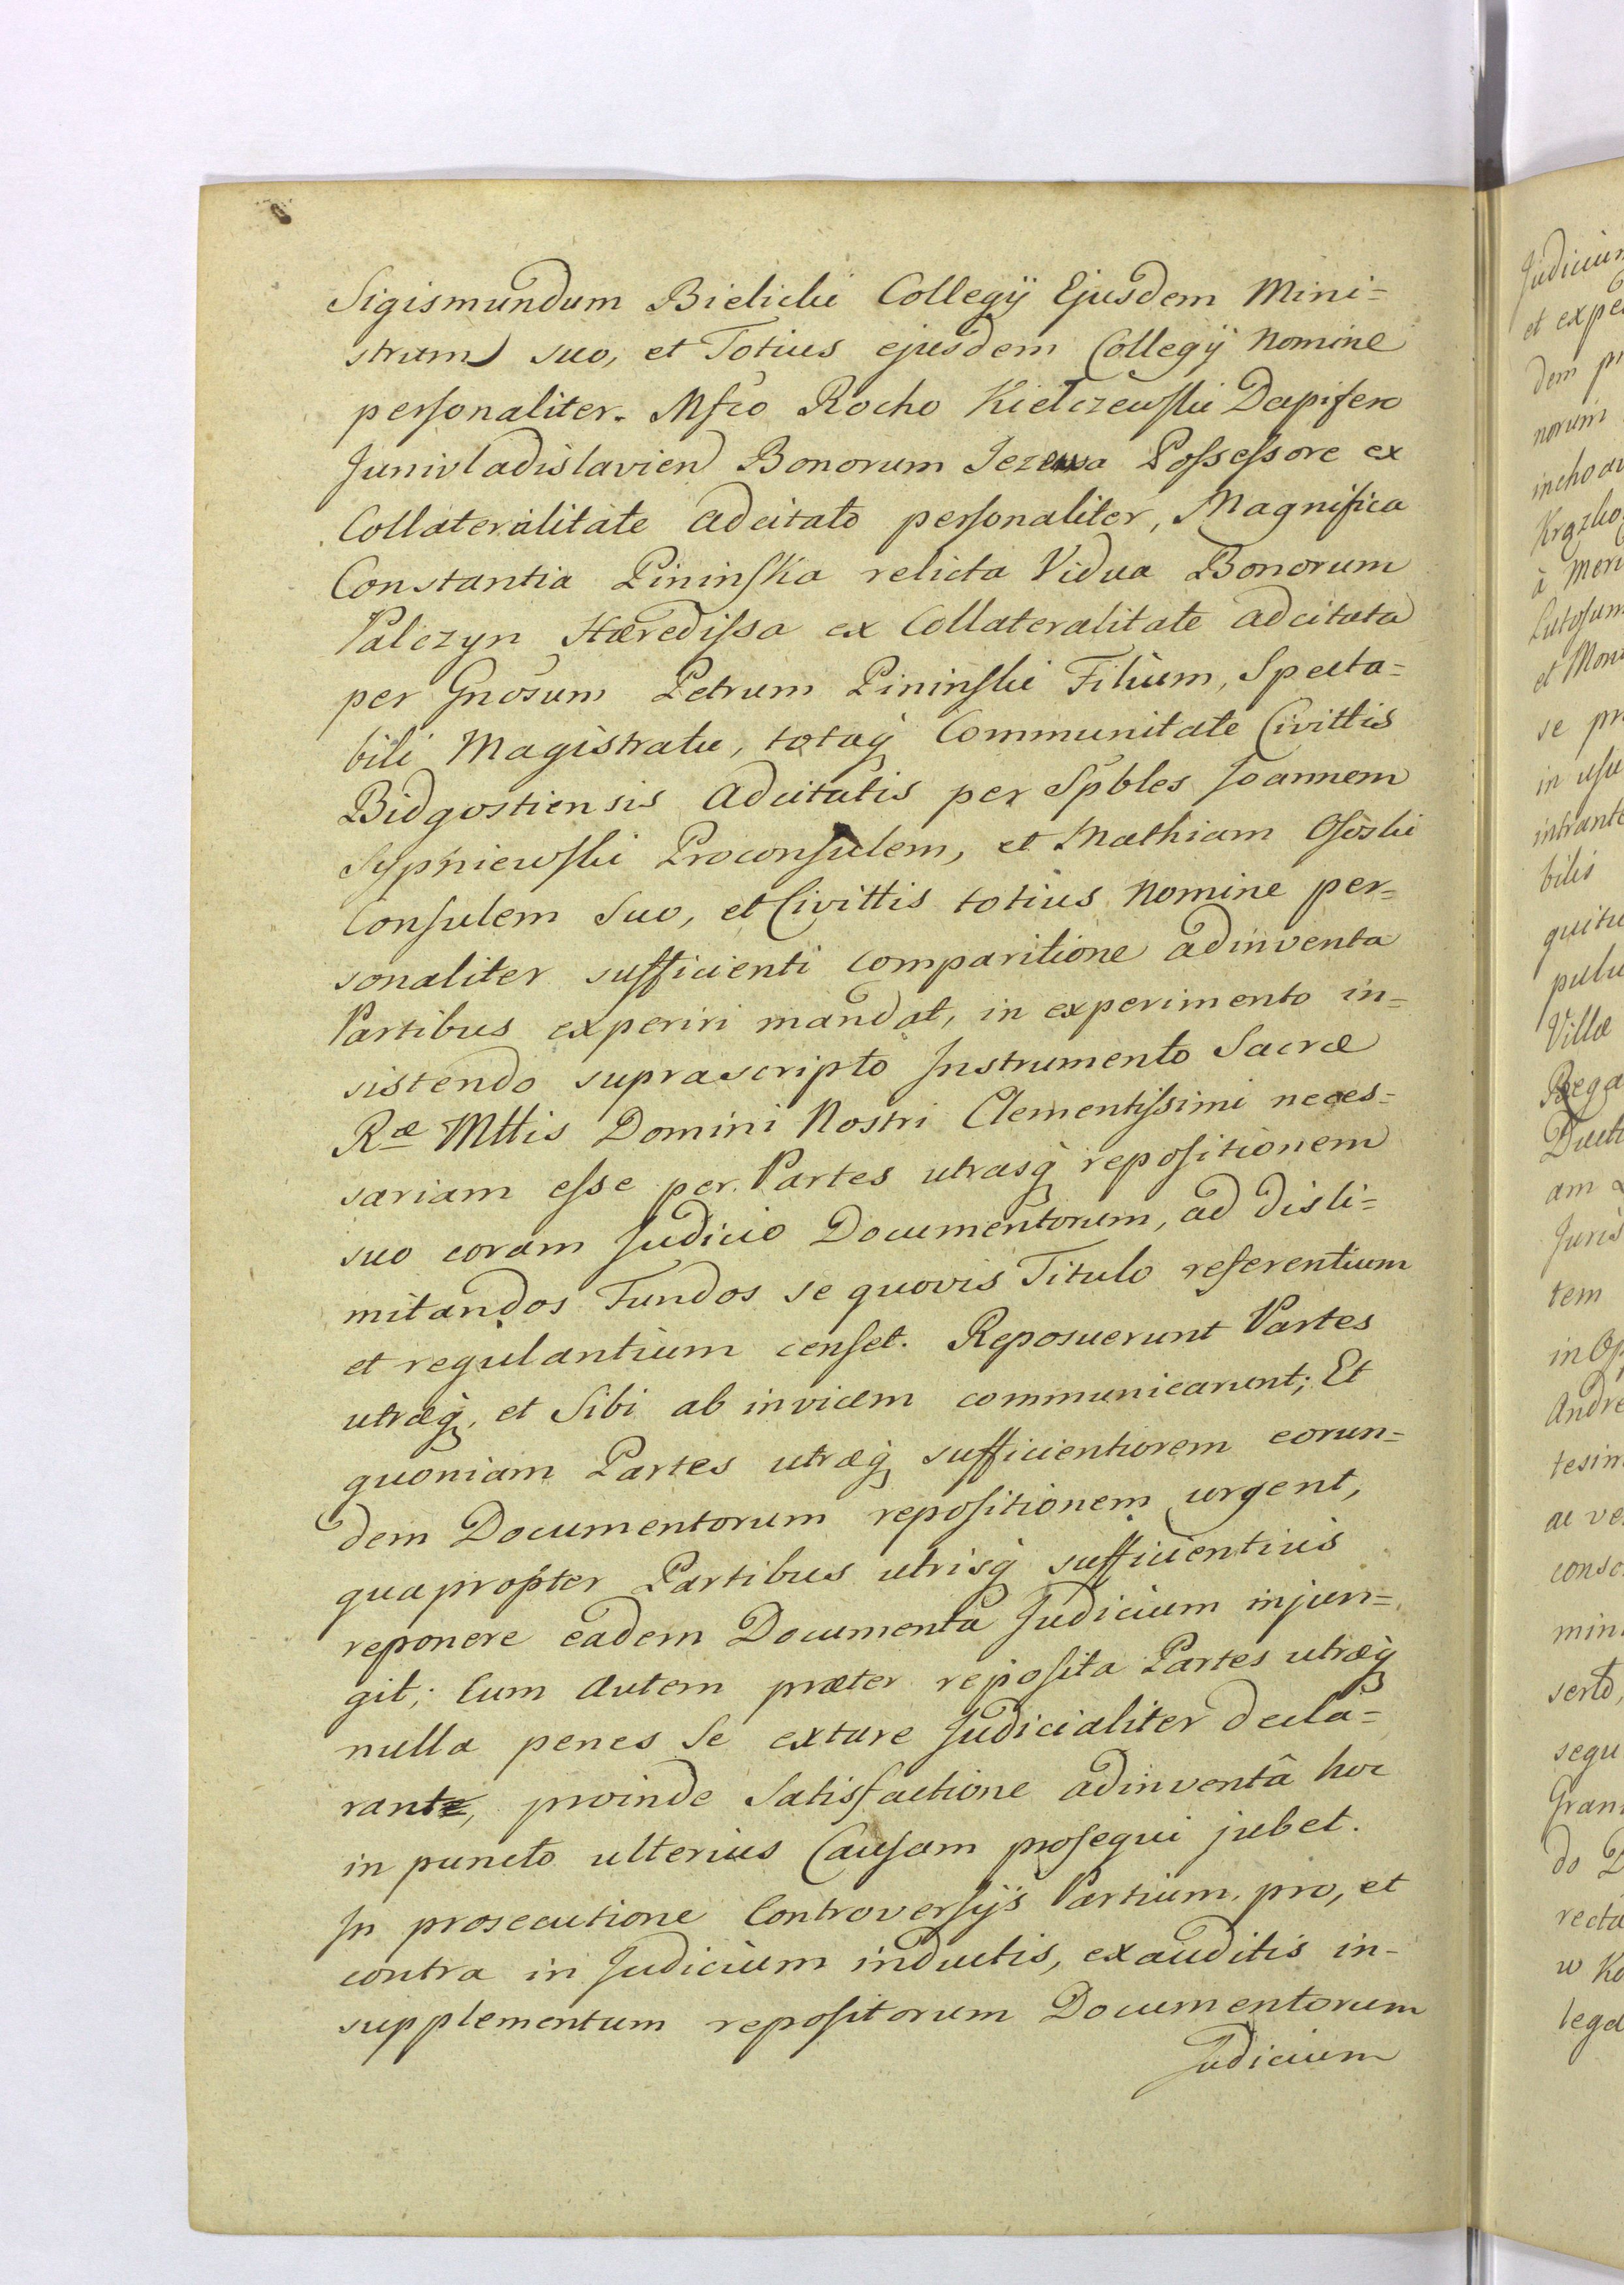 Sigismundum Bielicki Collegÿ Ejusdem Mini=
strum suo, et Totius ejusdem Collegÿ Nomine
personaliter. Mfco Rocho Kiełczewski Dapifero
Junivladislavien Bonorum Jezewa Possessore ex
Collateralitate adcitato personaliter, Magnifica
Constantia Pininska relicta Vidua Bonorum
Palczyn Hæredissa ex Collateralitate adcitata
per Gnosum Petrum Pininski Filium, Specta=
bili Magistratu, totaq Communitate Civittis
Bidgostiensis Adcitatis per Spbles Joannem
Sypniewski Proconsulem, et Mathiam Ososki
Consulem Suo, et Civittis totius Nomine per=
sonaliter sufficienti comparitione adinventa
Partibus experiri mandat, in experimento in=
sistendo suprascripto Instrumento Sacræ
Ræ Mttis Domini Nostri Clementissimi neces=
sariam esse per Partes utrasq repositionem
suo coram Judicio Documentorum, ad disli=
mitandos Fundos se quovis Titulo referentium
et regulantium censet. Reposuerunt Partes
utræq, et Sibi ab invicem communicarunt; Et
quoniam Partes utræq sufficientiorem eorun=
dem Documentorum repositionem urgent,
quapropter Partibus utrisq sufficientius
reponere eadem Documenta Judicium injun=
git; Cum autem præter reposita Partes utræq
nulla penes Se extare Judicialiter decla=
rant, proinde Satisfactione adinventâ hoc
in puncto ulterius Causam prosequi jubet.
In prosecutione Controversÿs Partium pro, et
contra in Judicium inductis, exauditis in=
supplementum repositorum Documentorum
Judicium
Judicium
dem
norum
à
se
in usu
bilis
Villæ
am
tem
ac
recta